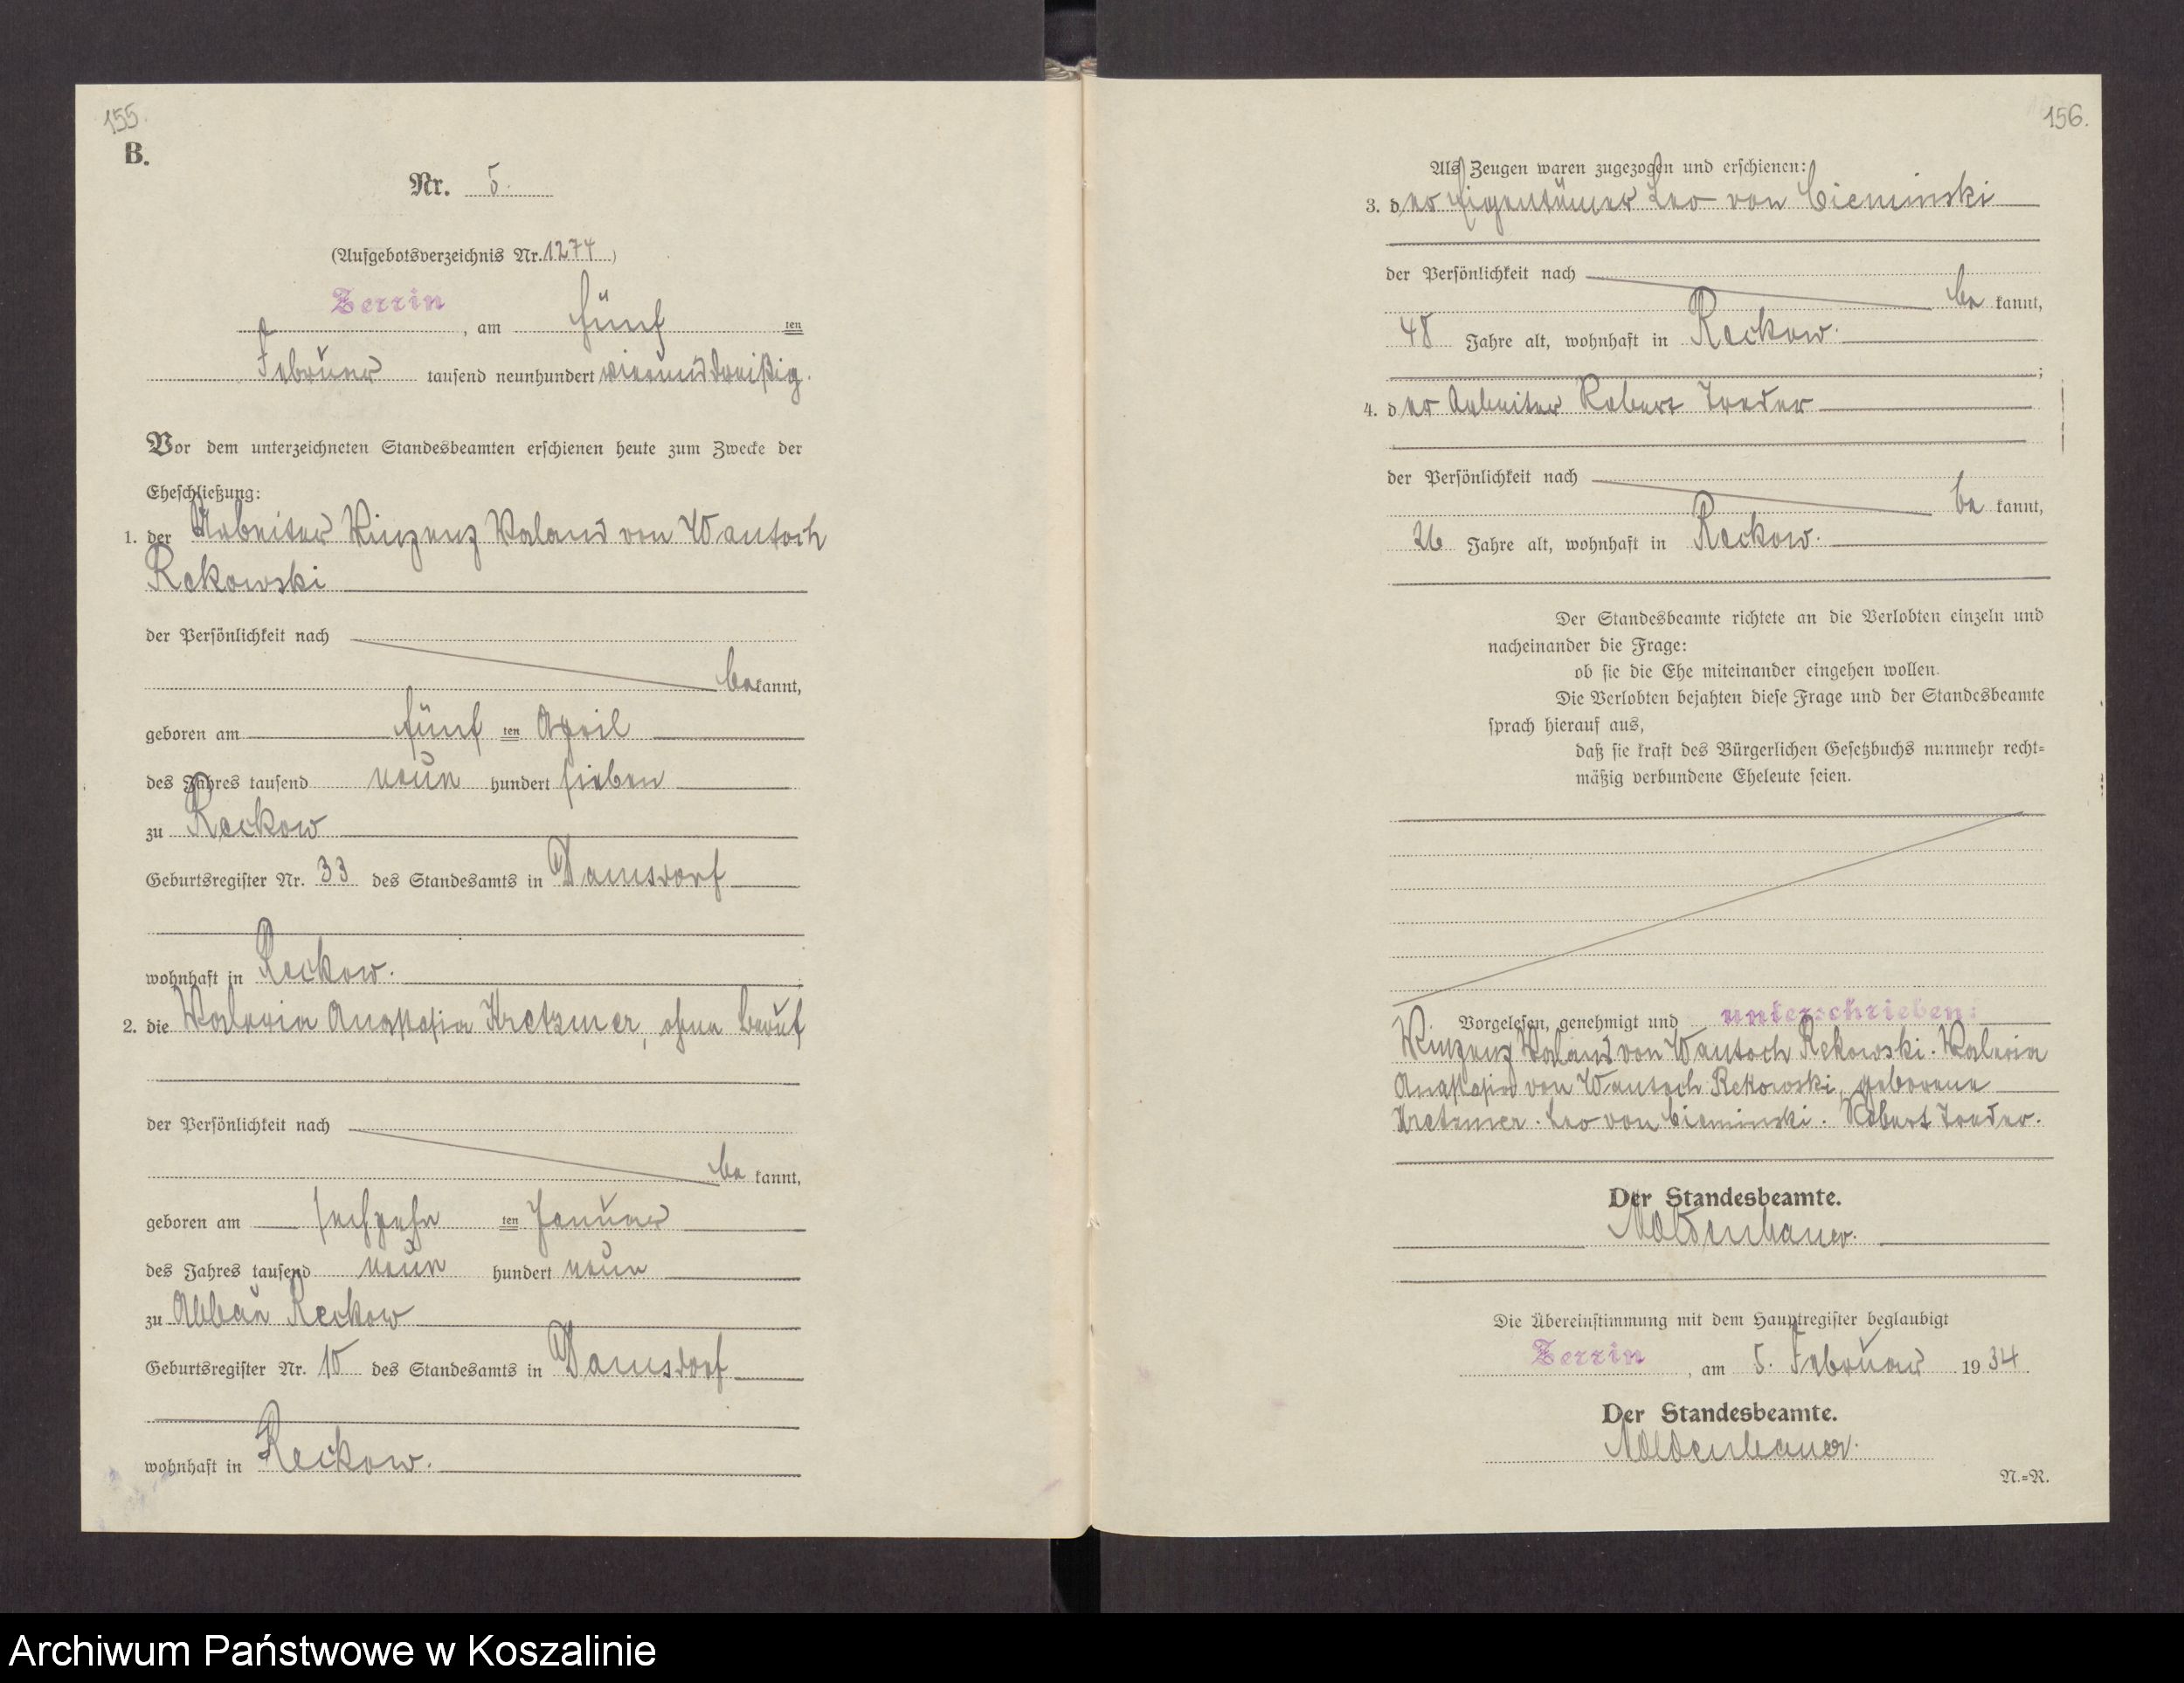 155.
B.
Nr. 5.
(Aufgebotsverzeichnis Nr. 1274)
Zerrin, am fünf ten
Februar tausend neunhundert vierunddreißig.
Vor dem unterzeichneten Standesbeamten erschienen heute zum Zwecke der
Eheschließung:
1. der Arbeiter Vinzenz Roland von Wantoch
Rekowski
der Persönlichkeit nach
bekannt,
geboren am fünf ten April
des Jahres tausend neun hundert sieben
zu Reckow
Geburtsregister Nr. 33 des Standesamts in Damsdorf
wohnhaft in Reckow.
2. die Valeria Anastasia Kretzmer, ohne Beruf
der Persönlichkeit nach
be kannt,
geboren am sechzehn ten Januar
des Jahres tausend neun hundert neun
zu Abbau Reckow
Geburtsregister Nr. 10 des Standesamts in Damsdorf
wohnhaft in Reckow.
156.
Als Zeugen waren zugezogen und erschienen:
3. der Eigentümer Leo von Cieminski
der Persönlichkeit nach
be kannt,
48 Jahre alt, wohnhaft in Reckow.
;
4. der Arbeiter Robert Troder
der Persönlichkeit nach
be kannt,
26 Jahre alt, wohnhaft in Reckow.
Der Standesbeamte richtete an die Verlobten einzeln und
nacheinander die Frage:
ob sie die Ehe miteinander eingehen wollen.
Die Verlobten bejahten diese Frage und der Standesbeamte
sprach hierauf aus,
daß sie kraft des Bürgerlichen Gesetzbuchs nunmehr recht=
mäßig verbundene Eheleute seien.
Vorgelesen, genehmigt und unterschrieben:
Vinzenz Roland von Wantoch Rekowski. Valeria
Anastasia von Wantoch Rekowski, geborene
Kretzmer. Leo von Cieminski. Robert Troder.
Der Standesbeamte.
Moldenhauer.
Die Übereinstimmung mit dem Hauptregister beglaubigt
Zerrin, am 5. Februar 1934
Der Standesbeamte.
Moldenhauer.
N.=R.
Archiwum Państwowe w Koszalinie